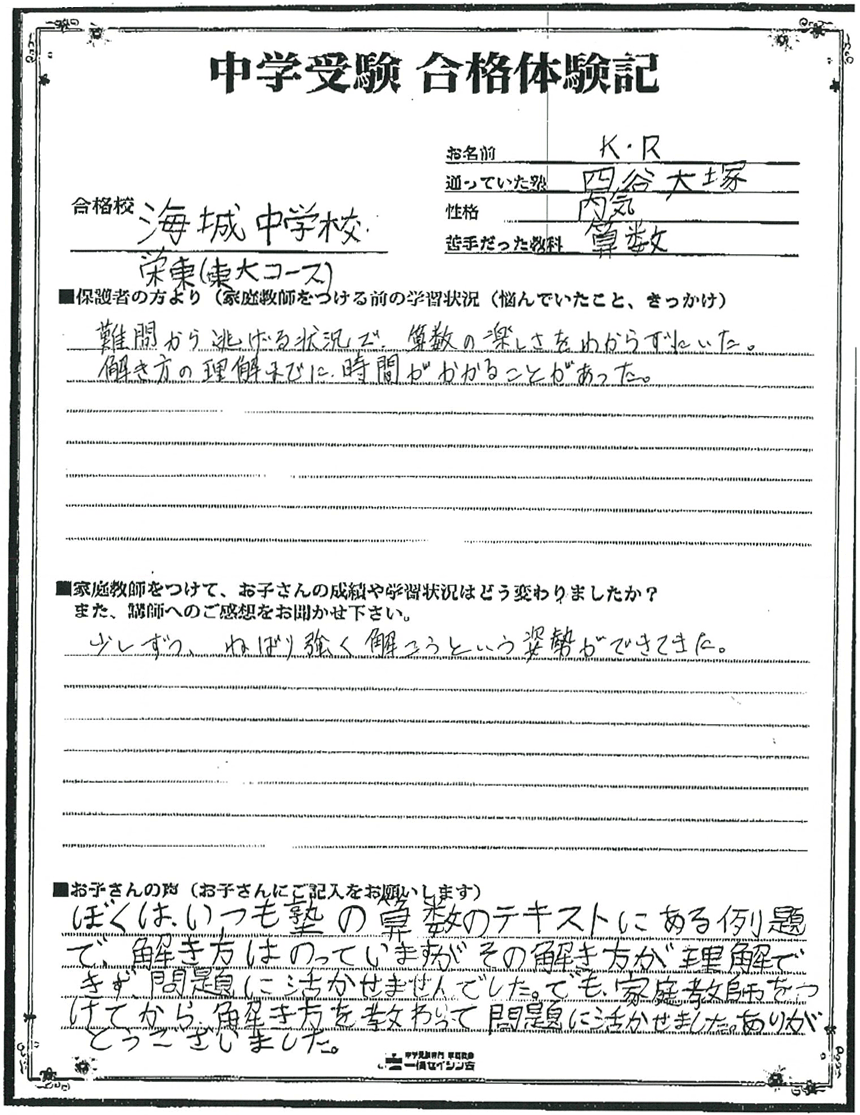 中学受験 合格体験記
お名前 K・R
通っていた塾 四谷大塚
性格 内気
苦手だった教科 算数
合格校 海城中学校
栄東(東大コース)
■保護者の方より（家庭教師をつける前の学習状況（悩んでいたこと、きっかけ）
難問から逃げる状況で、算数の楽しさをわからずにいた。
解き方の理解までに、時間がかかることがあった。
■家庭教師をつけて、お子さんの成績や学習状況はどう変わりましたか？
また、講師へのご感想をお聞かせ下さい。
少しずつ、ねばり強く解こうという姿勢ができてきた。
■お子さんの声（お子さんにご記入をお願いします）
ぼくは、いつも塾の算数のテキストにある例題
で、解き方はのっていますがその解き方が理解で
きず、問題に活かせませんでした。でも、家庭教師をつ
けてから、解き方を教わって問題に活かせました。ありが
とうございました。
中学受験専門 家庭教師
一橋セイシン会